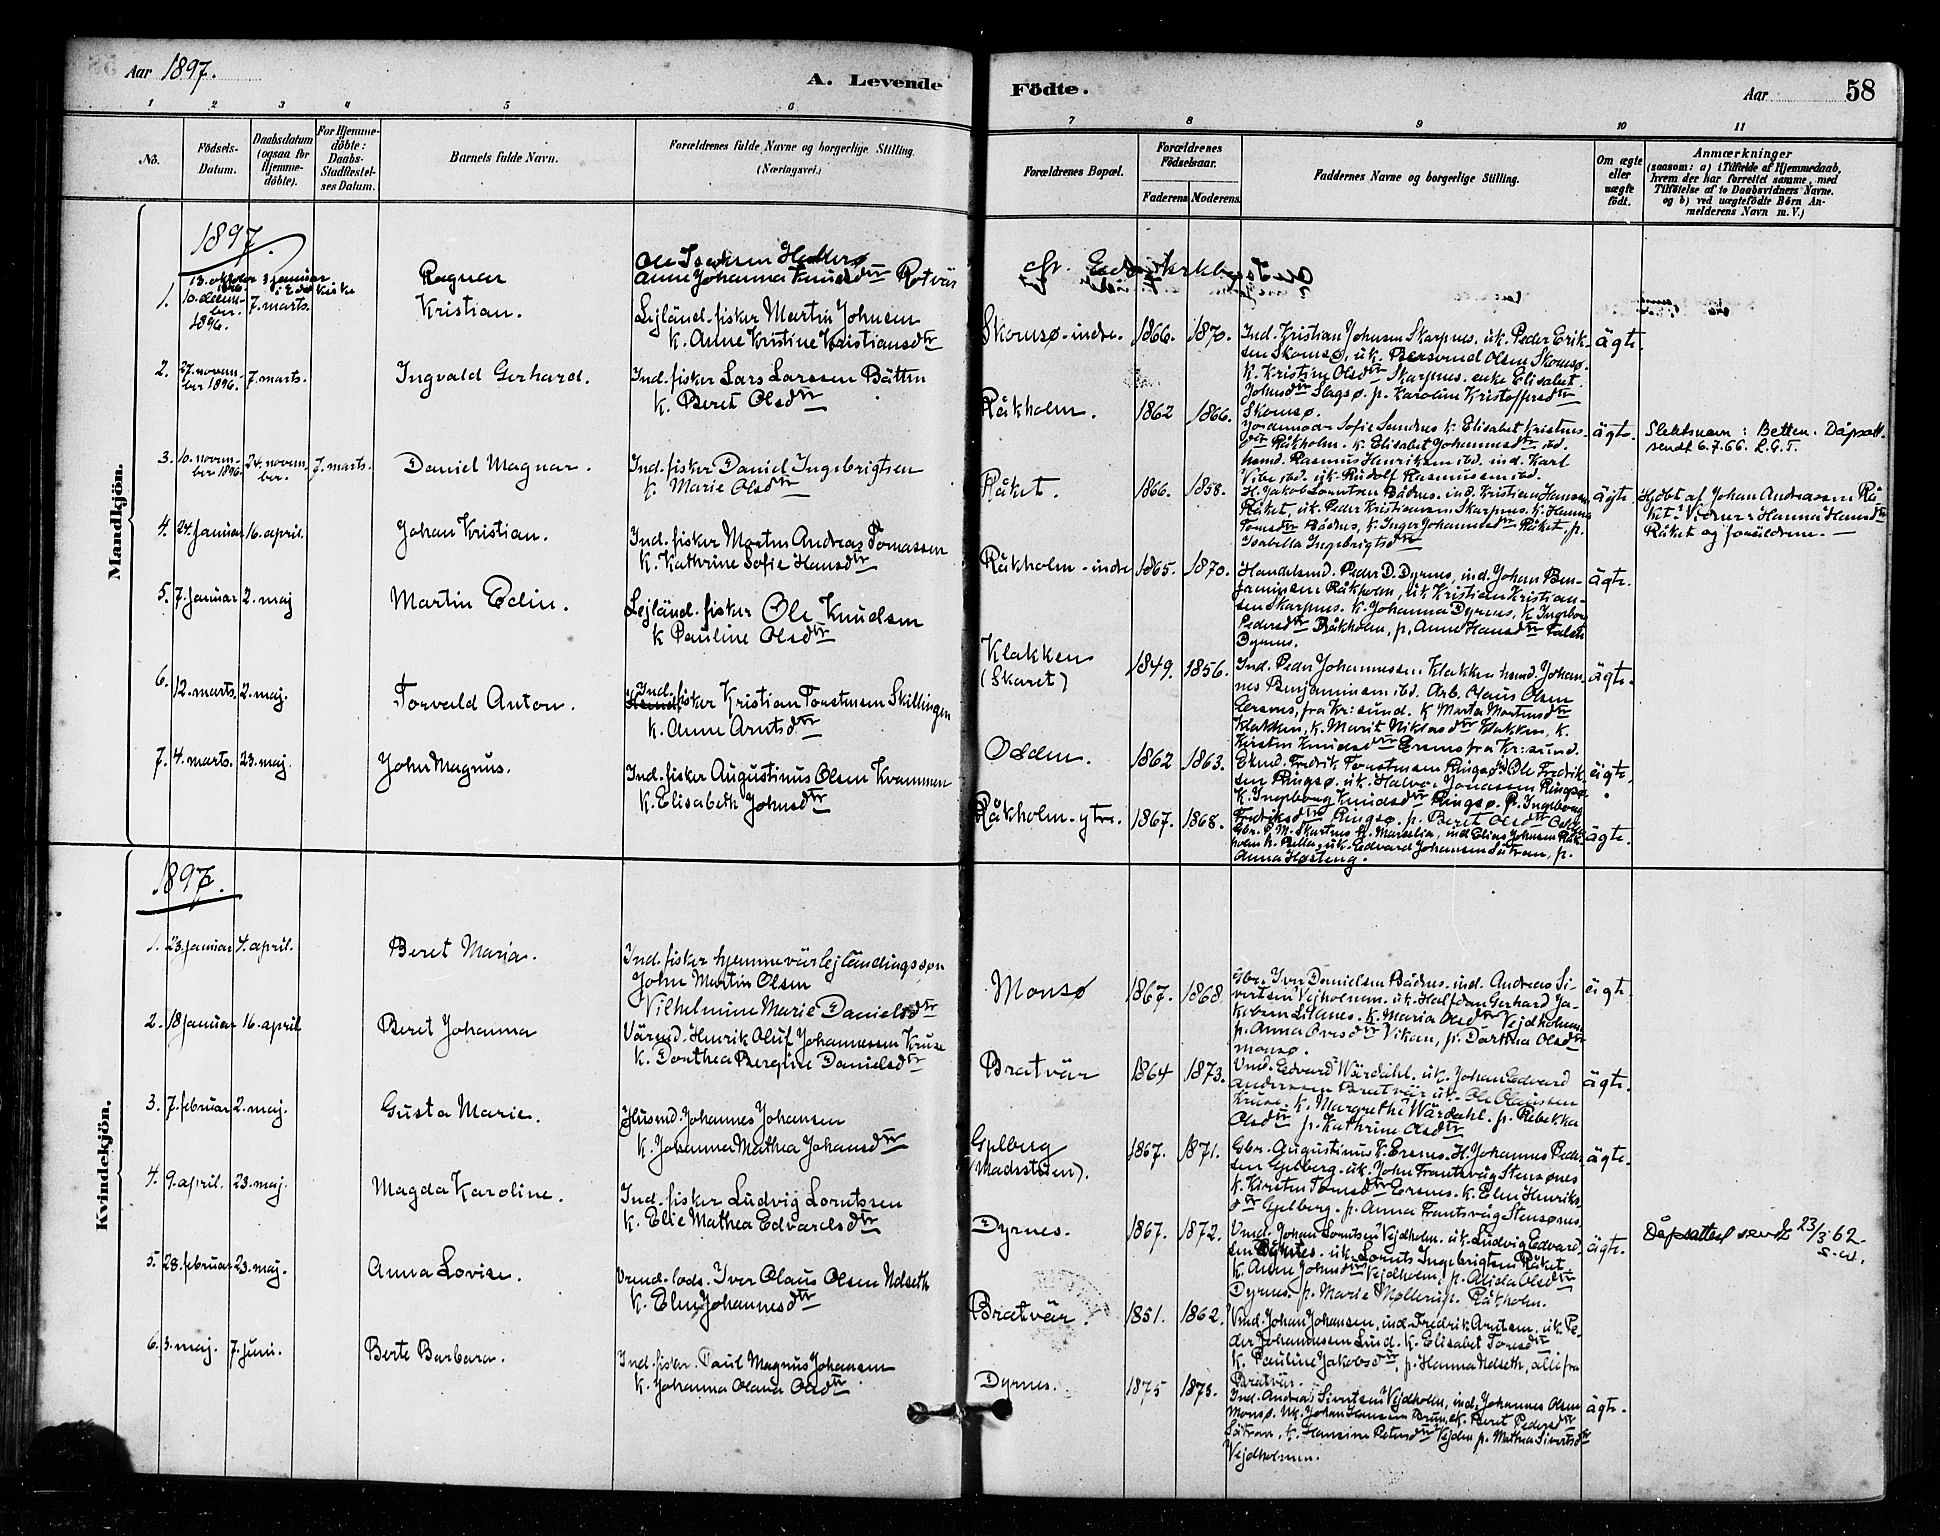 Aar 1897.
A. Levende
Födte.
Aar
58
1 2 3 4 5 6
7 8 9 10 11
No.
Födsels-Datum.
Daabsdatum (ogsaa for Hjemme-döbte).
For Hjemme-döbte: Daabs-Stadfæstel-ses Datum.
Barnets fulde Navn.
Forældrenes fulde Navne og borgerlige Stilling.
(Næringsvei.)
Forældrenes Bopæl.
Forældrenes Födselsaar.
Faderens. Moderens.
Faddernes Navne og borgerlige Stilling.
Om ægte eller uægte födt.
Anmærkninger
(saasom: a) i Tilfælde af Hjemmedaab,
hvem der har forrettet samme, med
Tilföielse af to Daabsvidners Navne.
og b) ved uægtefödte Börn An-
melderens Navn m. V.)
Mandkjön.
1897.
13. oktober 3 januar
Ragnar
Anne Johanna Knudsdtr Rotvär
1. 10. decem-ber. 1896. 7. marts.
Kristian.
Lejländ. fisker Martin Johnsen
k. Anne Kristine Kristiansdtr
Skomsö-indre. 1866. 1870.
Ind. Kristian Johnsen Skarpnes, uk. Peder Erik-
sen Skomsö, uk. Bersvend Olsen Skomsö.
k. Kristine Olsdtr Skarpnes. enke Elisabet
Johnsdtr Slagsö. p. Karoline Kristoffersdtr
Skomsö.
ägte
2. 27. novem-ber 1896. 7. marts.
Ingvald Gerhard.
Ind. fisker Lars Larssen Bätten
k. Beret Olsdtr
Råkholm. 1862 1866.
Jordemoder Sofie Sandnes k. Elisabet Kristens-
dtr Råkholm. k. Elisabet Johannesdtr ibd.
husmd. Rasmus Henriksen ibd. ind. Karl
Vibe ibd. uk. Rudolf Rasmussen ibd.
ägte.
Slektsnavn: Betten. Dåpsatt.
sendt 6.7.66. L.G.T.
3. 10. novem-ber 1896. 24. novem-ber. 7. marts.
Daniel Magnar.
Ind. fisker Daniel Ingebrigtsen
k. Marie Olsdtr
Råket. 1866. 1858.
H. Jakob Lorntsen Bådnes. ind. Kristian Hansen
Råket, uk. Peder Kristiansen Skarpnes. k. Hanna
Tomasdtr Bådnes, k. Inger Johannesdtr Råket, p.
Isabella Ingebrigtsdtr
ägte.
Hjdöbt af Johan Andreassen Rå-
ket. Vidner: Hanna Hansdtr
Råket og forældrene.
4. 24. januar 16. april.
Johan Kristian.
Ind. fisker Martin Andreas Tomassen
k. Kathrine Sofie Hansdtr
Råkholm-indre 1865. 1870.
Handelsmd. Peder D. Dyrnes, ind. Johan Ben-
jaminsen Råkholm, uk Kristian Kristian-
sen Skarpnes. k. Johanna Dyrnes, k Ingeborg
Pedersdtr Råkholm, p. Anne Hansdtr
Dyrnes.
ägte.
5. 7. januar 2. maj
Martin Edin.
Lejländ. fisker Ole Knudsen
k Pauline Olsdtr
Klakken
(Skaret)
1849. 1856.
Ind. Peder Johannessen Klakken husmd. Johan-
nes Benjaminsen ibd. Arb. Olaus Olsen
Ersnes, fra Kr:sund. k Marta Martinsdtr
Klakken, k. Marit Niklasdtr Klakken, k.
Kirsten Knudsdtr Ersnes fra Kr:sund.
ägte.
6. 12. marts. 2. maj.
Torvald Anton.
Ind. fisker Kristian Torstensen Skillingen
k. Anne Arntsdtr
Odden. 1862 1863.
Ekmd. Fredrik Torstensen Ringsö, Ole Fredrik-
sen Ringsö. uk. Halvor Jonassen Ringsö
k. Ingeborg Knudsdtr Ringsö. p. Ingeborg
Fredriksdtr Ringsö. p. Beret Olsdtr
ägte.
7. 4. marts. 23. maj.
John Magnus.
Ind. fisker Augustinus Olsen Kvammen
k. Elisabeth Johnsdtr
Råkholm-ytre. 1867. 1868.
ind Elias Johnsen Råk-
holm k. Pella, uk. Edvard Johansen Sätran, p.
Anna Hösteng.
ägte.
Kvindekjön.
1897.
1. 23. januar 4. april.
Beret Maria.
Ind. fisker hjemmevär. lejländingssön
John Martin Olsen
Vilhelmine Marie Danielsdtr
Monsö 1867. 1868
Gbr. Iver Danielsen Bådnes. ind. Andreas Si-
vertsen Vejholmen. uk. Halfdan Gerhard Ja-
kobsen Lillenes. k. Maria Olsdtr Vejdholmen
p. Anna Oresdtr Vikan, p. Darthea Olsdtr
Monsö.
ägte
2. 18 januar 16. april
Beret Johanna
Värmd. Henrik Oluf Johannessen Kruse
k. Dorthea Bergine Danielsdtr
Bratvär 1864 1873.
Vmd. Edvard Wärdahl. uk. Johan Edvard
Anderssen Bratvär uk. Ole Olaussen
Kruse. k. Margrethe Wärdahl. p. Rebekka
Olsdtr p. Kathrine Olsdtr
ägte.
3. 7. februar 2. maj.
Gusta Marie.
Husmd. Johannes Johansen
k. Johanna Mathea Johansdtr
Gjelberg
(Madsstuen).
1867. 1871.
Gbr. Augustinus K. Ersnes. H. Johannes Peder-
sen Gjelberg. uk. John Frantsvåg Stensönes
k. Kirsten Tomasdtr Ersnes. k. Elen Henriks-
dtr Gjelberg. p. Anna Frantsvåg Stensönes
ägte.
4. 9. april. 23. maj.
Magda Karoline.
Ind. fisker Ludvig Lorntssen
k. Elie Mathea Edvardsdtr
Dyrnes. 1867. 1872.
Vmd. Johan Lorntsen Vejdholm. uk. Ludvig Edvard-
sen Dyrnes. uk. Lornts Ingebrigtsen Råket
k. Anne Johnsdtr Vejdholm, p. Alida Olsdtr
Dyrnes. p. Marie Möllerup. Råkholm.
ägte.
Dåpsattest sendt 23/3 62.
S.W.
5. 28. februar 23. maj.
Anna Lovise.
Vmd. lods. Iver Olaus Olsen Udseth
k. Elen Johannesdtr
Bratvär. 1851. 1862.
Vmd. Johan Johansen, ind. Fredrik Arntsen. uk. Pe-
der Johannessen Lund. k. Elisabet Toresdtr
k. Pauline Jakobsdtr, p. Hanna Udseth, alle fra
Bratvär.
6. 3. maj. 7. juni.
Berte Barbara.
Ind. fisker. Paul Magnus Johansen
k. Johanna Olava Olsdtr
Dyrnes. 1875 1873.
Ind. Andreas Sivertsen Vejdholm, ind. Johannes Olsen
Monsö. Uk. Johan Hanssen Brun, ek. Beret Pedersdtr
Sätran, k. Hansine Petersdtr Vejden p. Mathea Sivertsdtr
Vejdholmen.
ägte.